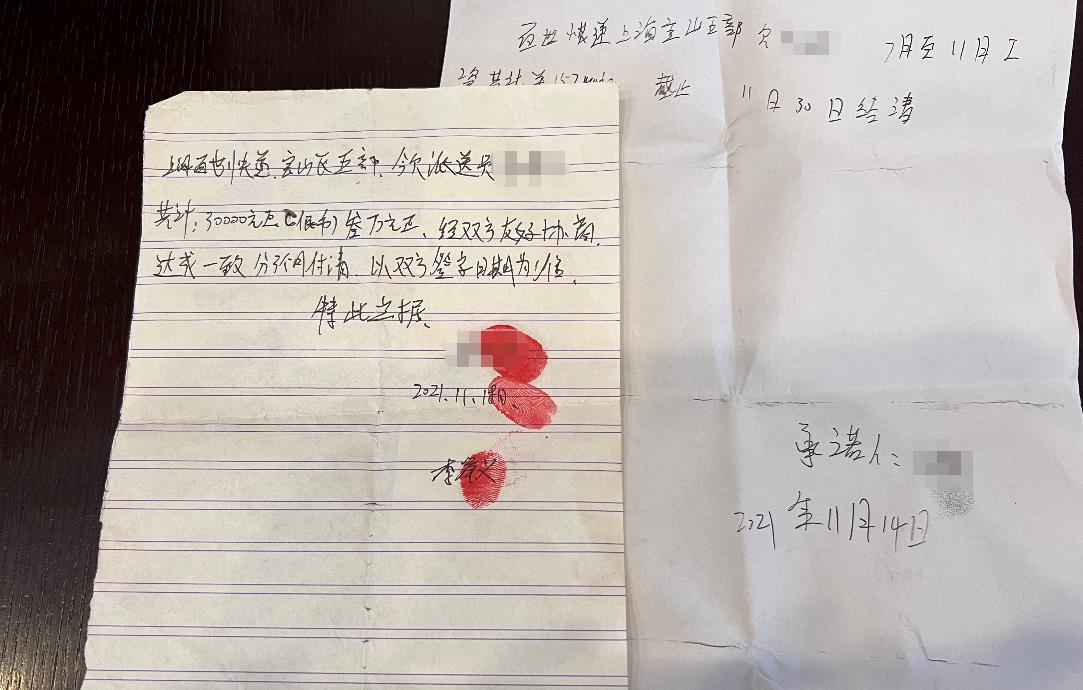 百世快递上海宝山五部欠 7月至11月工
资共计 截止 11月30日结清
上海百世快递宝山区五部,今欠派送员
共计:30000元正(人民币)叁万元正、经双方友好协商,
达成一致 分3个月付清,以双方签字日期为准,
特此立据、
2021.11.14日、
承诺人:
2021年11月14日